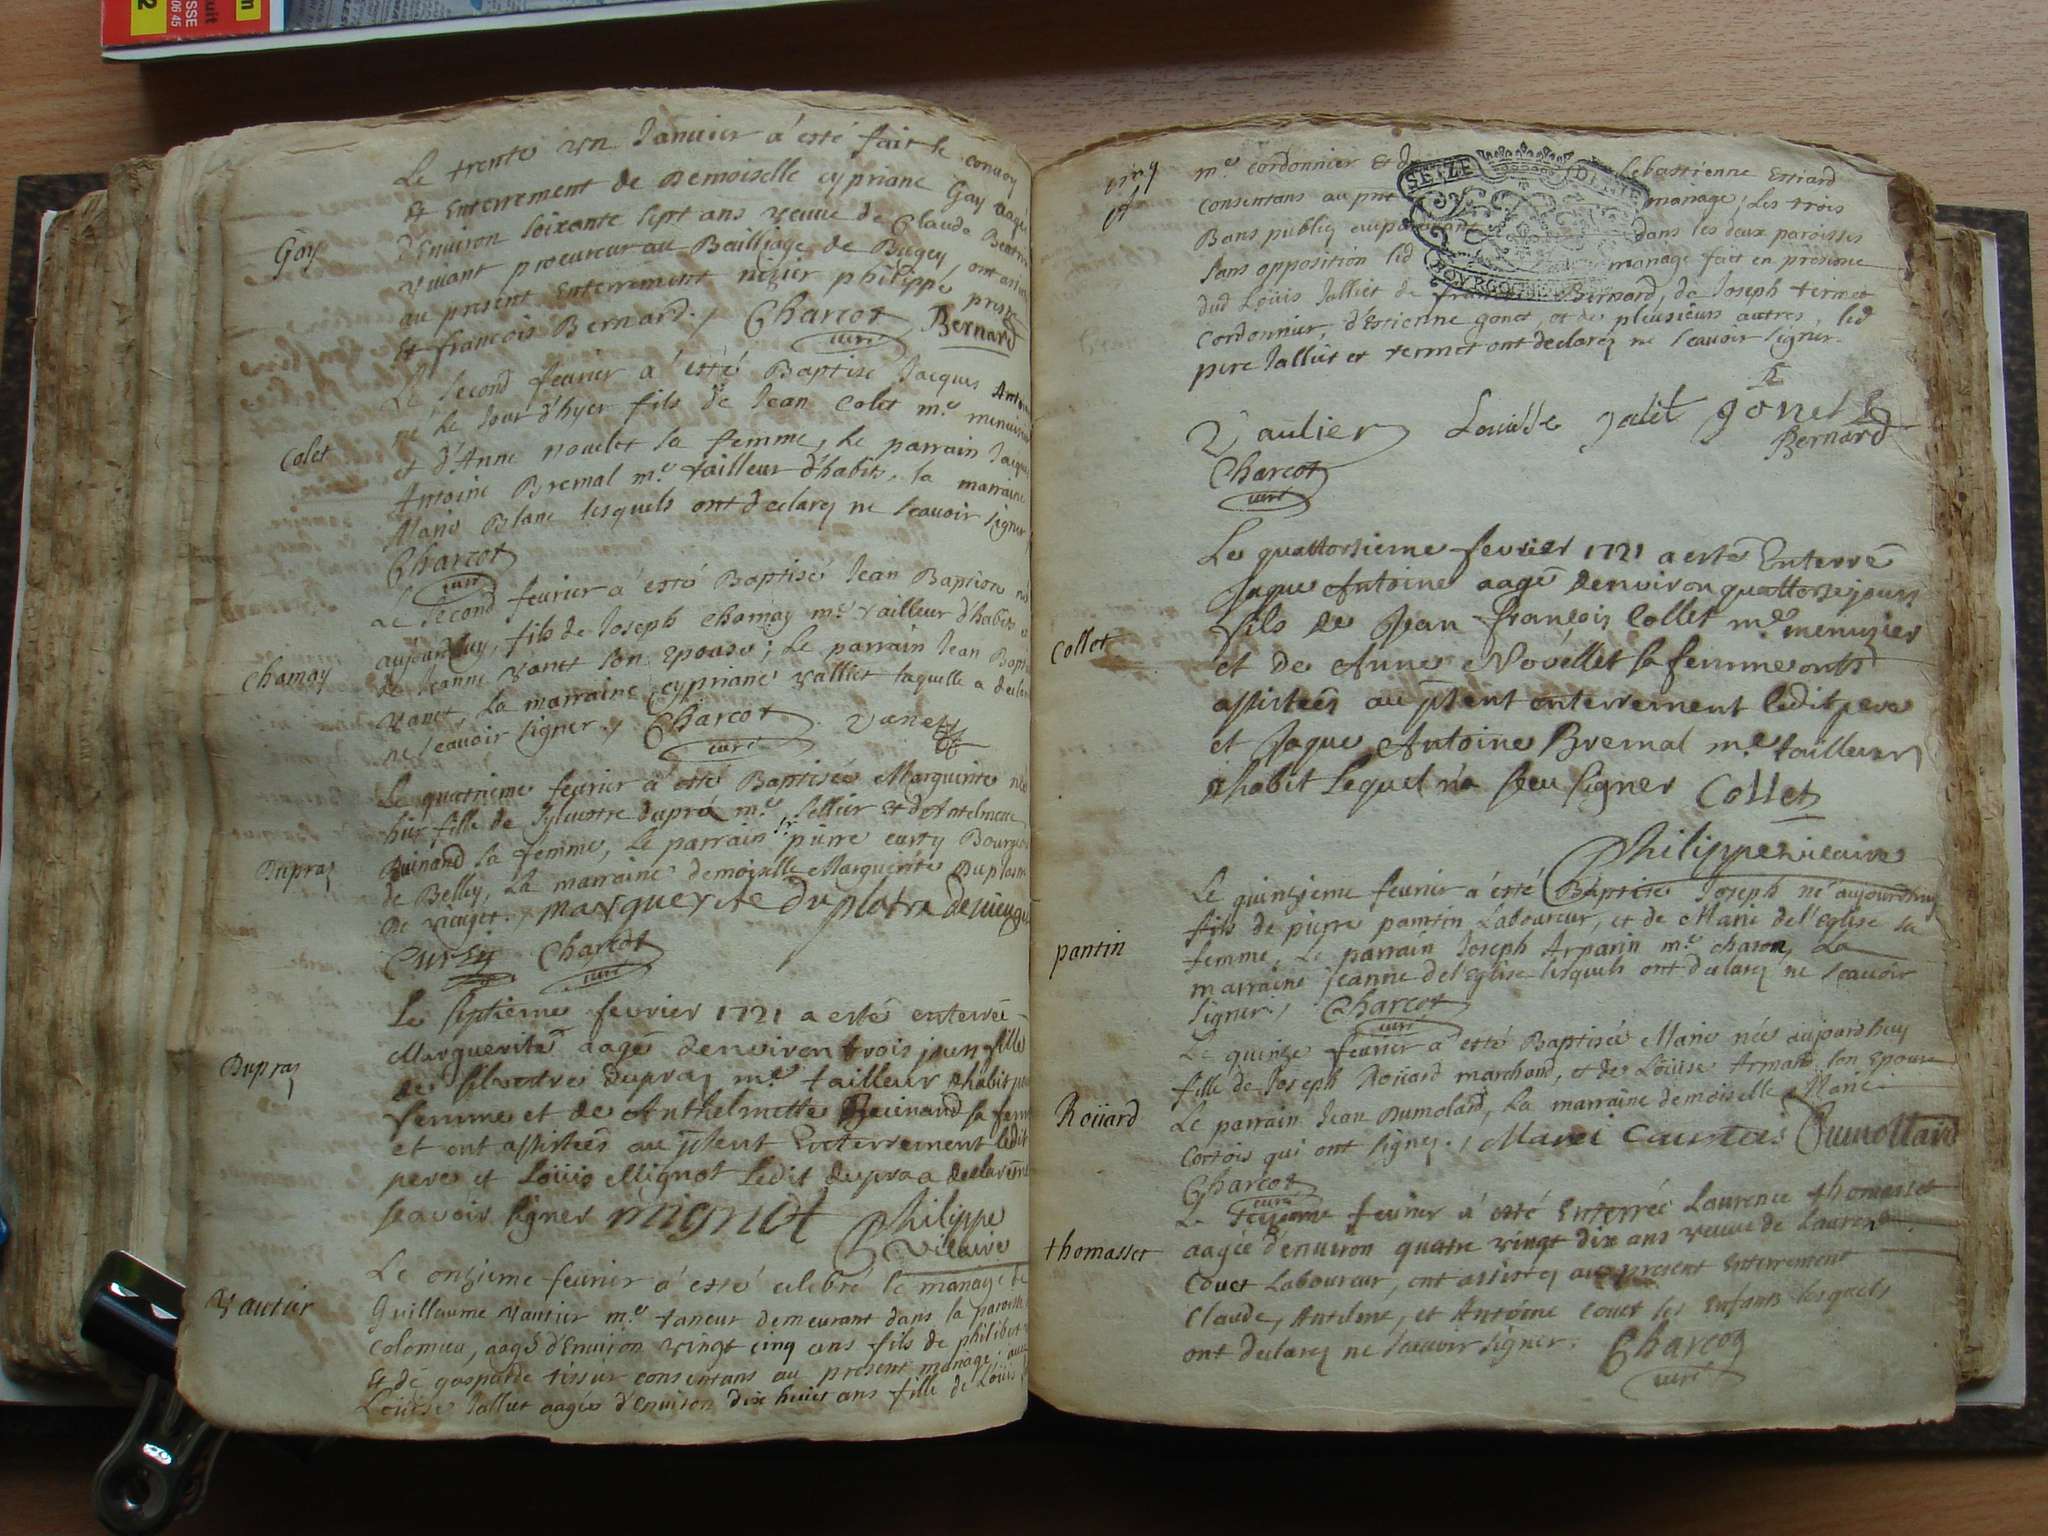 Le trente vn Januier a esté fait le conuoy
Et Enterrement de Demoiselle cypriane Gay aagée
Gay
d'Enuiron soixante sept ans veuue de Claude
viuant procureur au Bailliage de Bugey, ont
au present Enterrement nizier philippe
Et francois Bernard. Charcot Bernard
curé
Le second feurier a esté Baptisé Jacques Antoine
né le Jour d'hyer fils de Jean Colet me. menuisier
Colet
et d'Anne nouelet sa femme, Le parrain Jacque
Antoine Bremal me. tailleur d'habits, la marraine
Marie Blanc lesquels ont declarez ne scauoir signer
Charcot
curé
Le second feurier a esté Baptisé Jean Baptiste né
aujourdhuy, fils de Joseph chamay me. tailleur d'habits
Chamay
de Jeanne vanet son Epouse; Le parrain Jean
vanet, La marraine cypriane valliet laquelle a
ne scauoir signer. Charcot vanet
curé
Le quatrieme feurier a esté Baptisée Marguerite née
hier fille de Syluestre dupra me. sellier et d'Antelmette
Dupraz
Buinand sa femme, Le parrain sr. pierre curty Bourgeois
de Belley, La marraine demoiselle Marguerite Duplatre
De vieuget. Marguerite Duplatre
Charcot
curé
Le septieme feurier 1721 a esté enterrée
Marguerite aagé denviron trois jours fille
Dupraz
de silvestre dupraz me. tailleur dhabit
femme et de Anthelmette Beuinand sa femme
et ont assistées au pñt Enterrement ledit
pere et Loüis Mignot Ledit dupra a declaré ne
scavoir signer mignot Philippe
Vicaire
Le onzieme feurier a esté celebré le mariage de
Vautier
Guillaume vautier me. taneur demeurant dans la paroisse
Colomieu, aagé d'Enuiron vingt cinq ans fils de philibert
Et de gasparde tissier consentans au present mariage; auec
Loüise Jalliet aagée d'Enuiron dix huict ans fille de Loüis
me. cordonnier Et Estiard
SEIZE
consentans au pnt mariage; Les trois
Bans publiez auparauant dans les deux paroisses
sans opposition led mariage fait en presence
BOVRGOGNE
dud Loüis Jalliet de francois Bernard, de Joseph termet
Cordonnier, d'Estienne gonet, et de plusieurs autres, led
pere Jalliet et termet ont declarez ne scauoir signer.
Vautier Louisse Jaliet gonet
Bernard
Charcot
curé
Le quattorsieme fevrier 1721 a esté Enterré
Jaque Antoine aagé denviron quattorse jours
fils de Jean françois Collet me. menusier
Collet
et de Anne Novellet sa femme ont
assistées au pñt enterrement ledit pere
et Jaque Antoine Bremal me. tailleur
dhabit Lequel na sceu signer Collet
Philippe vicaire
Le quinzieme feurier a esté Baptisé Joseph né aujourdhuy
fils de pierre pantin Laboureur, et de Marie del'Eglise sa
pantin
femme, Le parrain Joseph Arparin me. charon, La
marraine Jeanne del'Eglise lesquels ont declarez ne scauoir
signer. Charcot
curé
Le quinze feurier a esté Baptisée Marie née aujourdhuy
fille de Joseph Roüard marchand, et de Loüise Armand son Epouse
Roüard
Le parrain Jean Dumolard, La marraine demoiselle Marie
Cortois qui ont signez. Marei Courtois Dumollard
Charcot
curé
Le feurier a esté Enterrée Laurence thomasset
thomasset
aagée d'enuiron quatre vingt dix ans veuue de Laurent
Couet Laboureur, ont assistez au present Enterrement
Claude, Antelme, et Antoine Couet ses Enfants lesquels
ont declarez ne scauoir signer. Charcot
curé